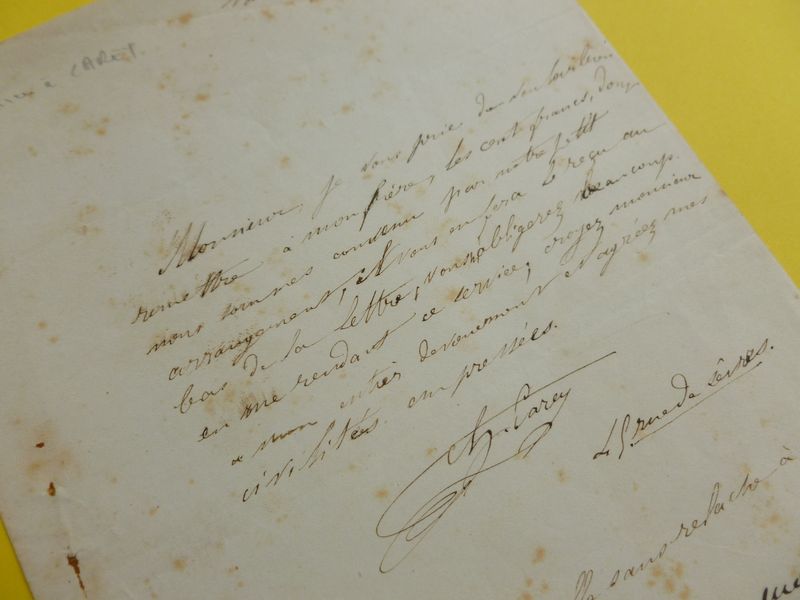 CARET.
Monsieur, je vous prie de bien vouloir
remettre à mon frère, les cent francs, dont
nous sommes convenu par notre petit
arrangement, et vous en fera le reçu au
bas de la lettre, vous m'obligerez beaucoup
en me rendant ce service; croyez monsieur
a mon entier devouement et agréez mes
civilités empressées.
Carey
45 rue de Sèvres.
sans relache à